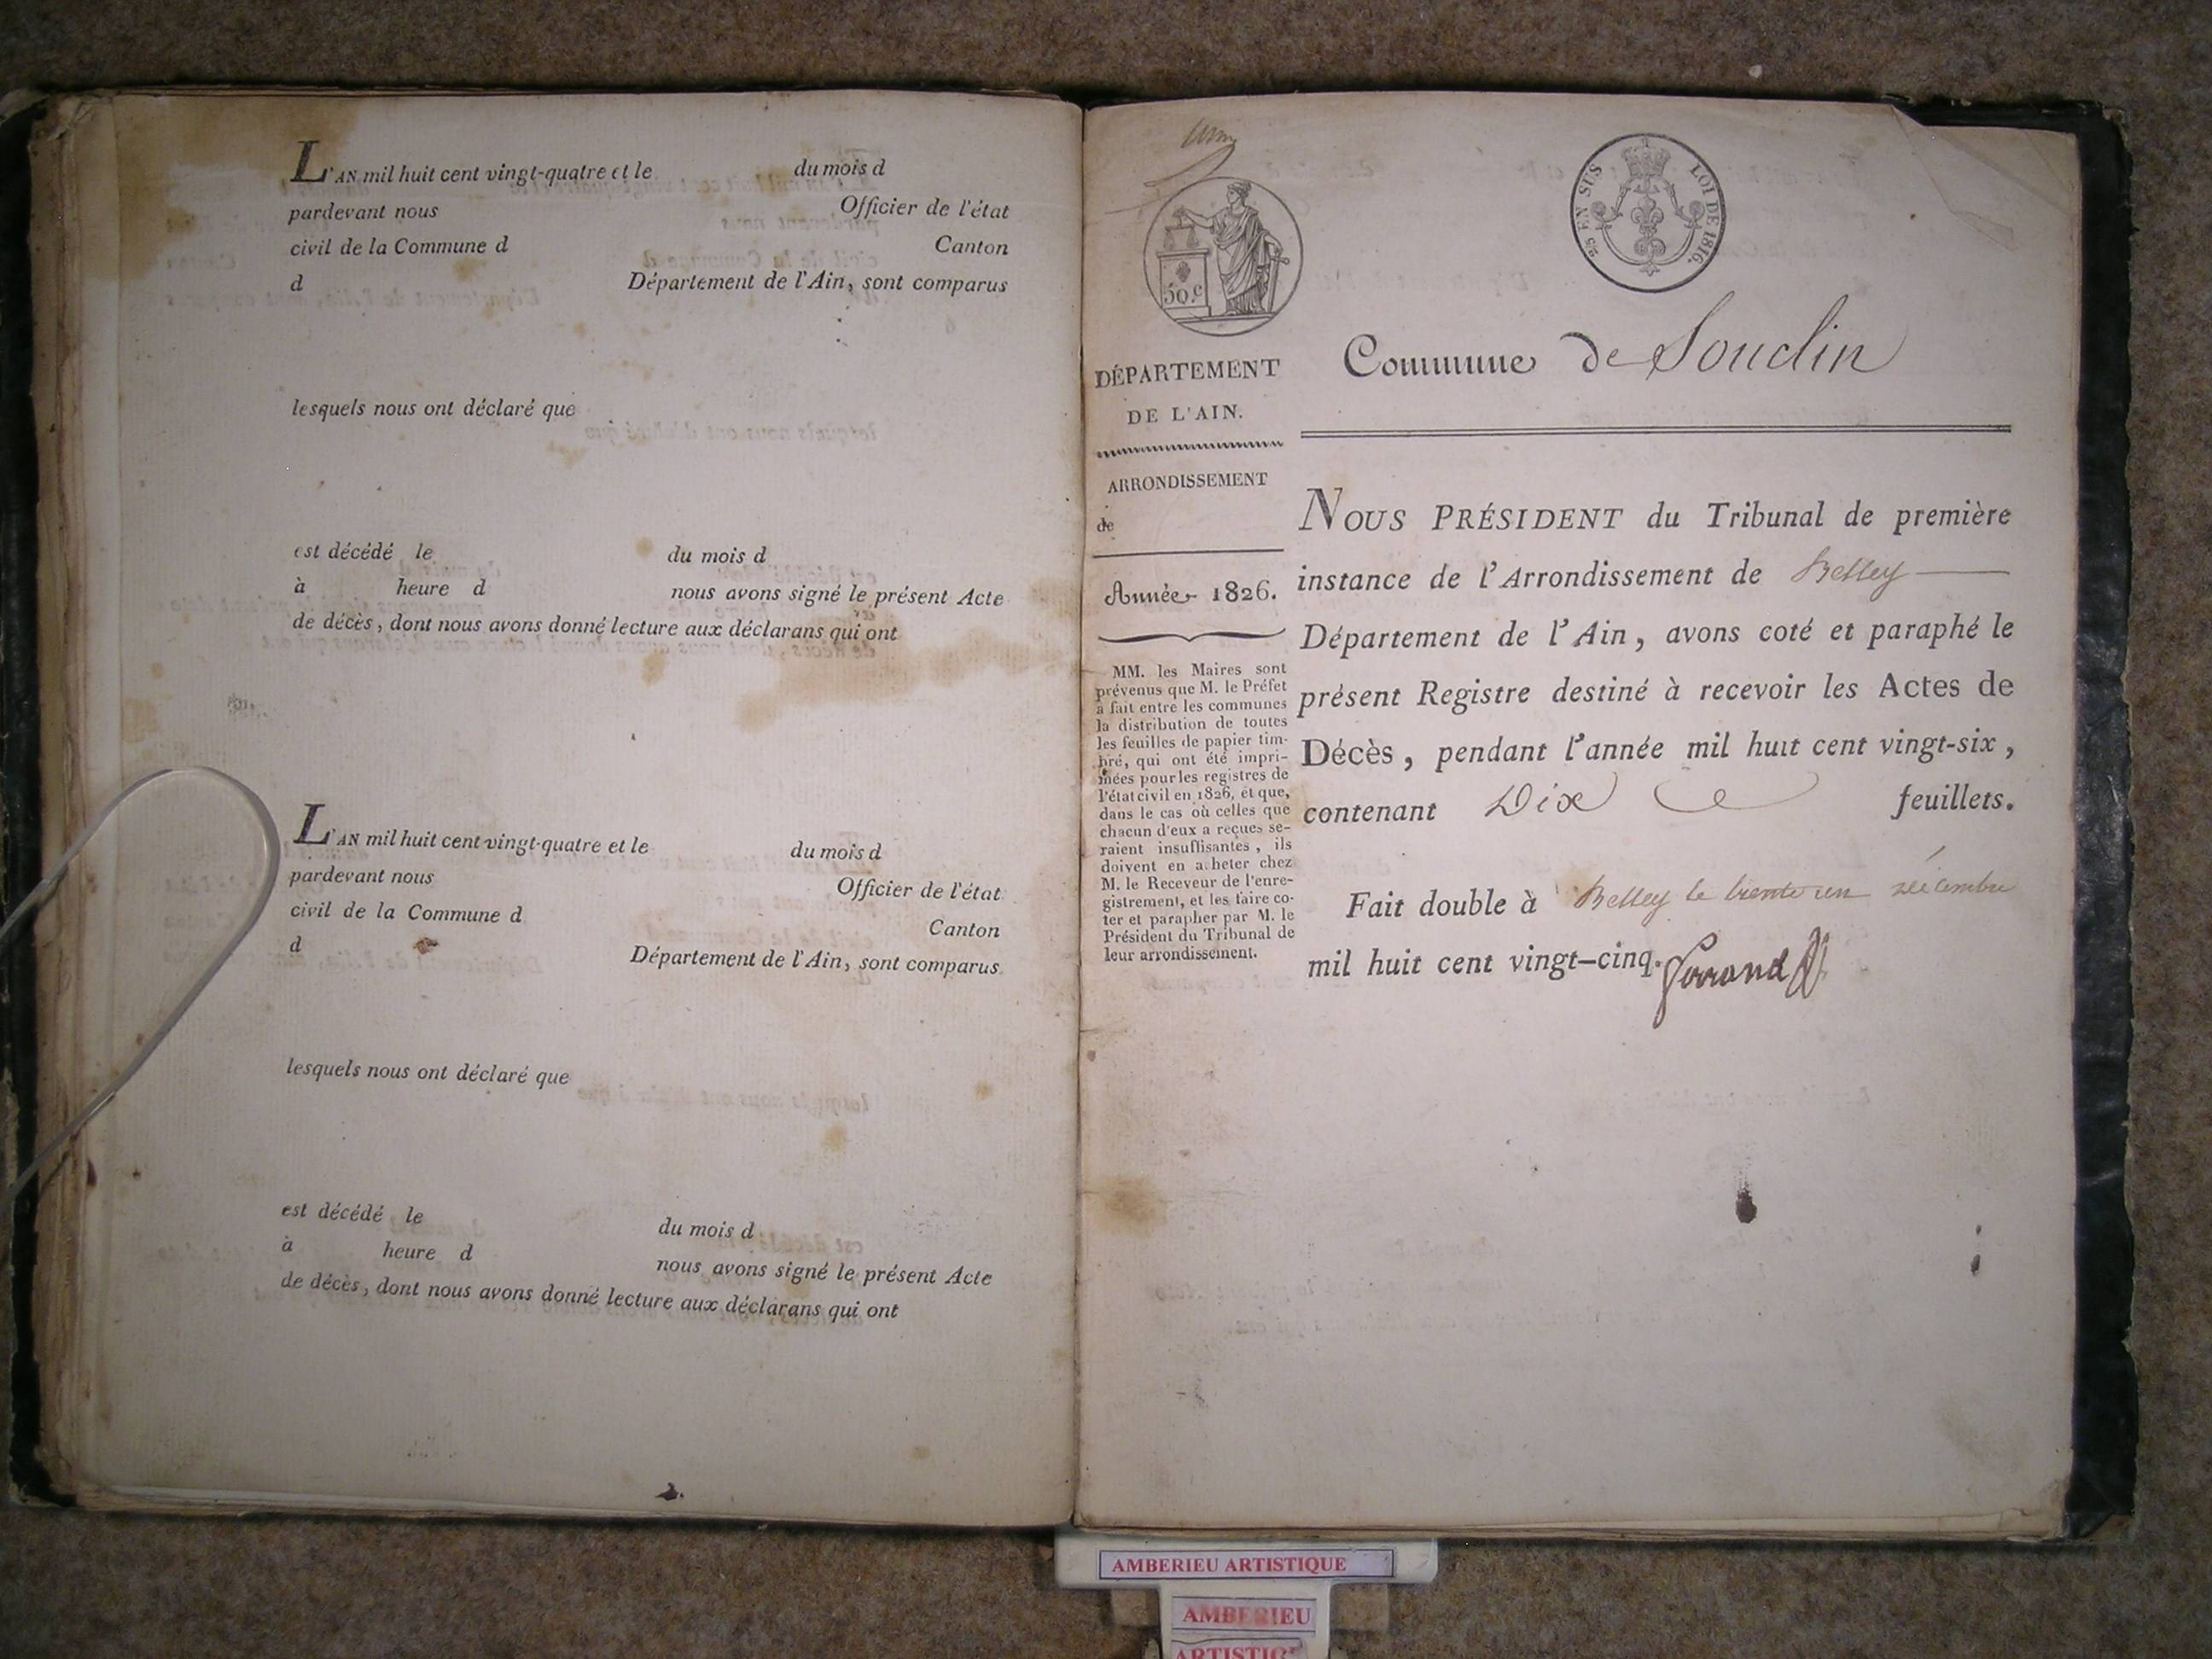 L'AN mil huit cent vingt-quatre et le du mois d
pardevant nous Officier de l'état
civil de la Commune d Canton
d Département de l'Ain, sont comparus
lesquels nous ont déclaré que
est décédé le du mois d
à heure d nous avons signé le présent Acte
de décès, dont nous avons donné lecture aux déclarans qui ont
L'AN mil huit cent vingt-quatre et le du mois d
pardevant nous Officier de l'état
civil de la Commune d Canton
d Département de l'Ain, sont comparus
lesquels nous ont déclaré que
est décédé le du mois d
à heure d nous avons signé le présent Acte
de décès, dont nous avons donné lecture aux déclarans qui ont
50.c
25 EN SUS LOI DE 1816.
DÉPARTEMENT
DE L'AIN.
ARRONDISSEMENT
de
Année 1826.
MM. les Maires sont
prévenus que M. le Préfet
a fait entre les communes
la distribution de toutes
les feuilles de papier tim-
bré, qui ont été impri-
mées pour les registres de
l'état civil en 1826, et que,
dans le cas où celles que
chacun d'eux a reçues se-
raient insuffisantes, ils
doivent en acheter chez
M. le Receveur de l'enre-
gistrement, et les faire co-
ter et parapher par M. le
Président du Tribunal de
leur arrondissement.
Commune de Souclin
NOUS PRÉSIDENT du Tribunal de première
instance de l'Arrondissement de Belley
Département de l'Ain, avons coté et paraphé le
présent Registre destiné à recevoir les Actes de
Décès, pendant l'année mil huit cent vingt-six,
contenant Dix feuillets.
Fait double à Belley le trente un décembre
mil huit cent vingt-cinq.
AMBERIEU ARTISTIQUE
AMBERIEU